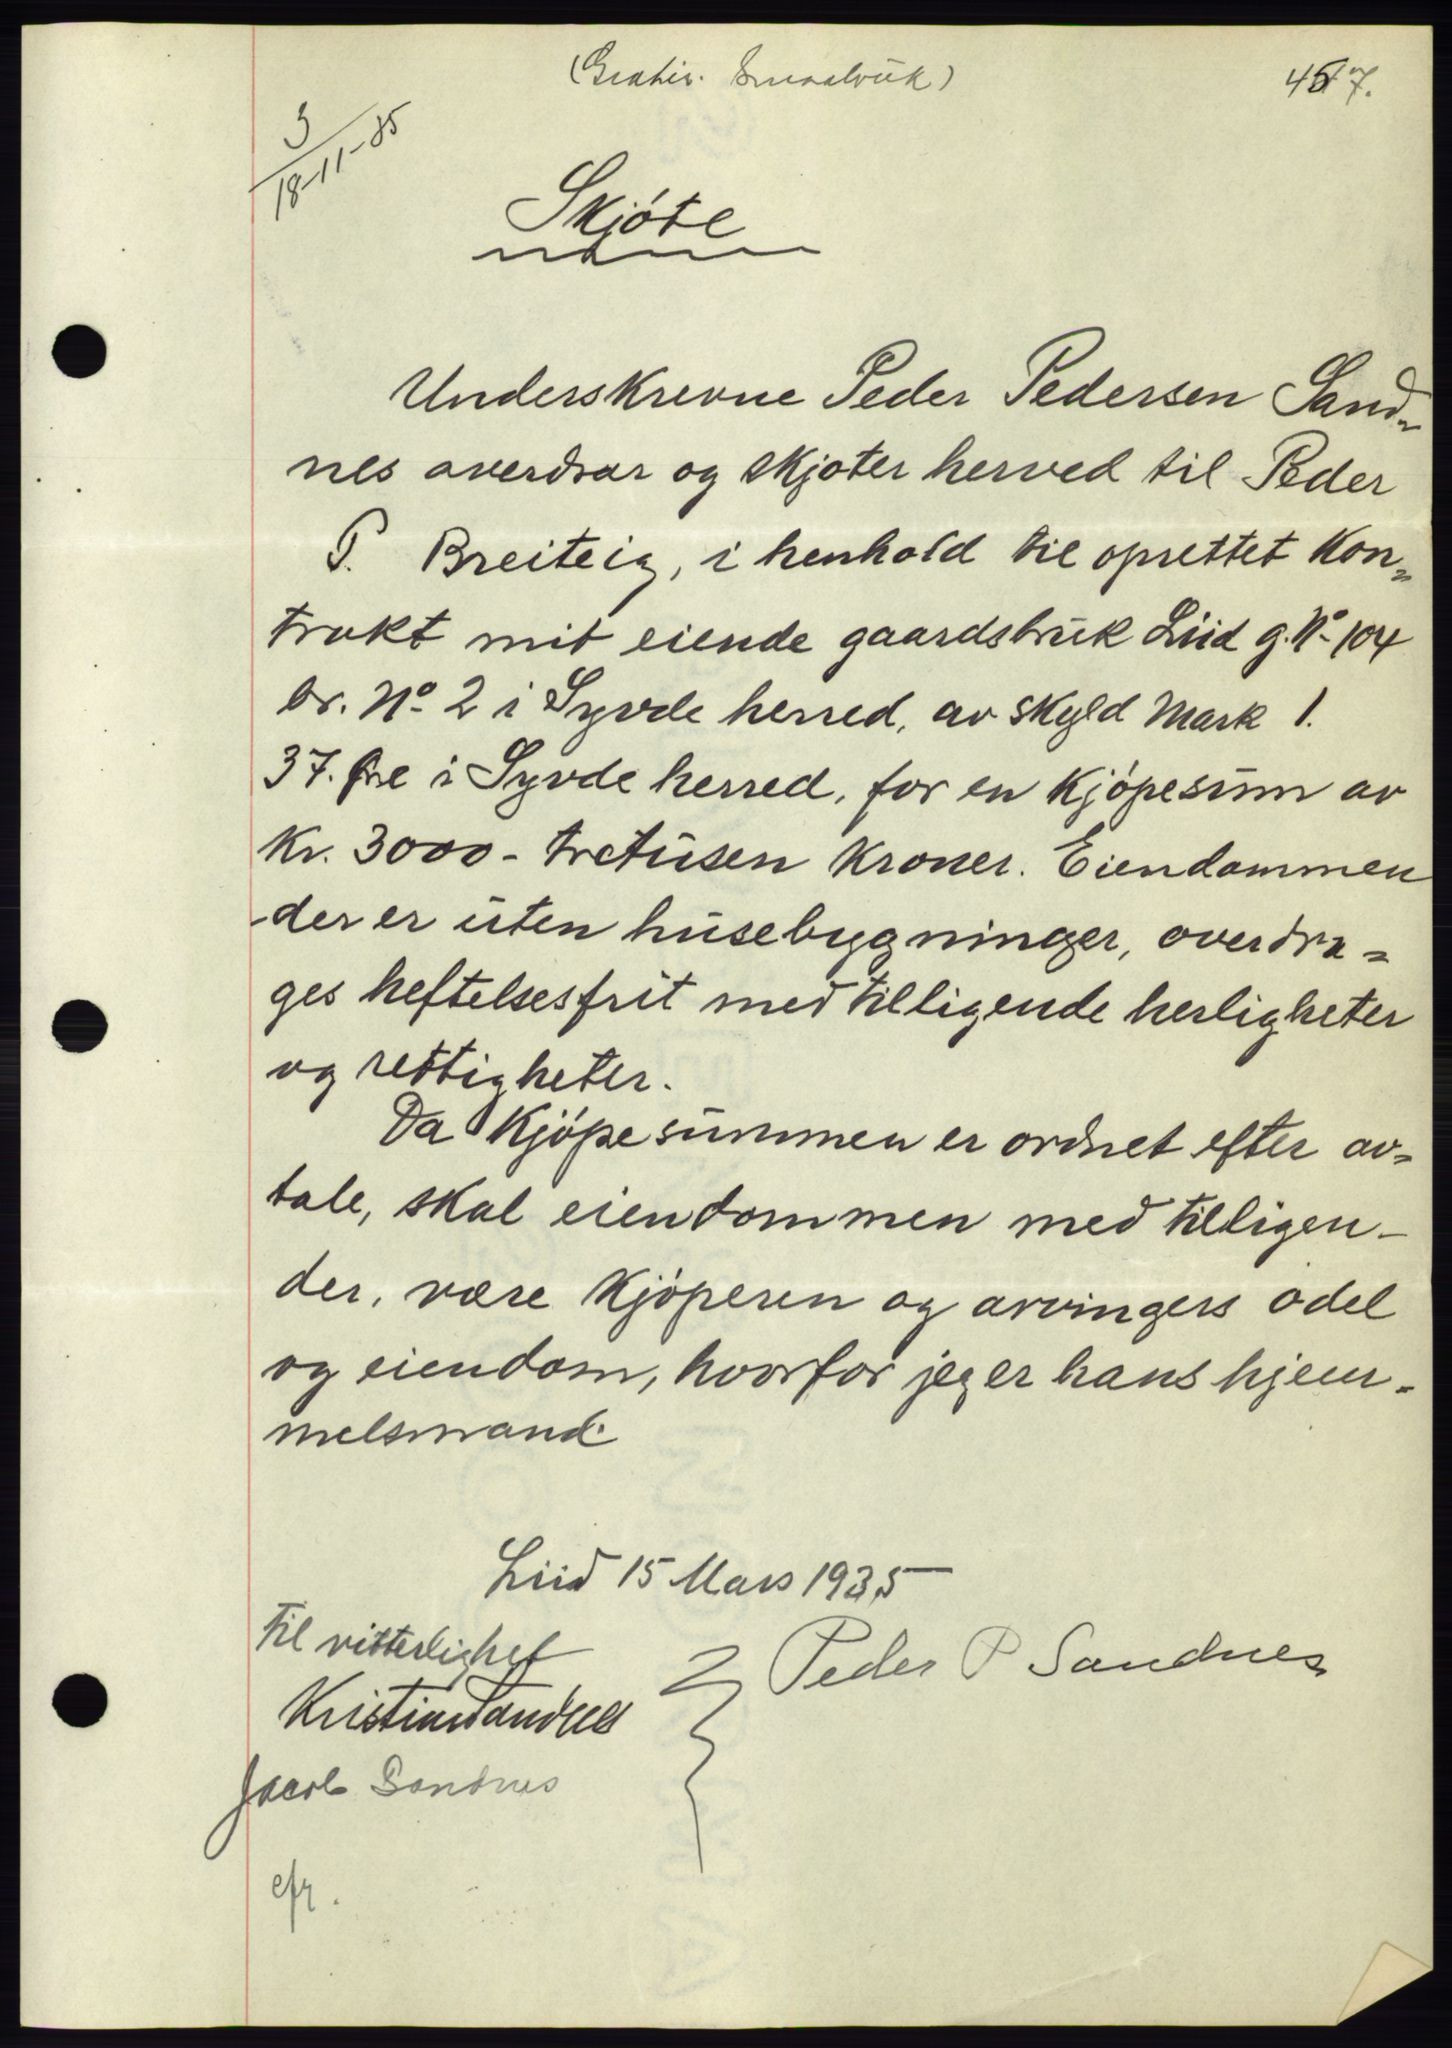 (Gratis. Smaabruk)
457.
3
18-11-35
Skjöte
Underskrevne Peder Pedersen Sand-
nes averdrar og skjøter herved til Peder
P. Breiteig, i henhold til oprettet Kon-
trakt mit eiende gaardsbruk Liid g.No 104
br. No 2 i Syvde herred, av skyld Mark 1.
37. Øre i Syvde herred, for en kjöpesum av
Kr. 3000 - tretusen Kroner. Eiendommen
der er uten husebygninger, overdra=
ges heftelsesfrit med tilligende herligheter
og rettigheter.
Da Kjöpesummen er ordnet efter av=
tale, skal eiendommen med tilligen-
der, være Kjöperen og arvingers odel
og eiendom, hvorfor jeg er hans hjem-
melsmand.
Liid 15 Mars 1935
Til vitterlighet
Peder P Sandnes
Kristian Sandnes
Jacob Sandnes
efr.